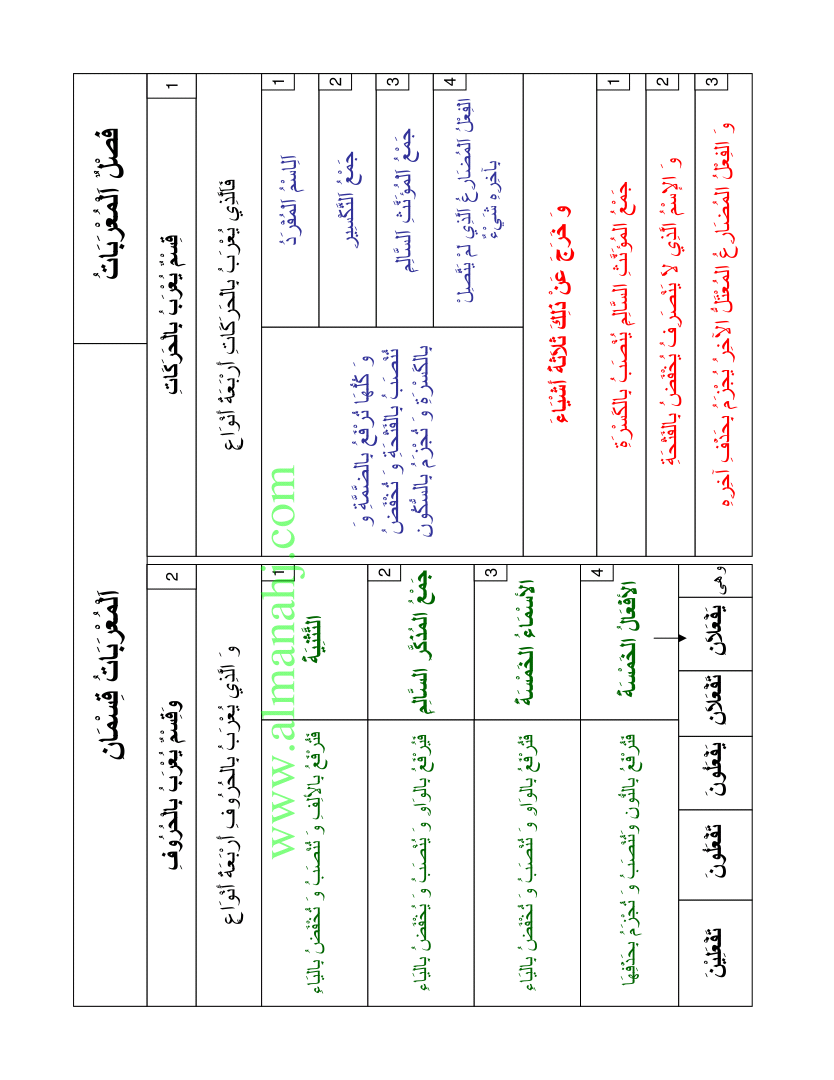 فَصْلٌ اَلْمُعْرَبَاتُ
اَلْمُعْرَبَاتُ قِسْمَانِ
1
قِسْمٌ يُعْرَبُ بِالْحَرَكَاتِ
فَالَّذِي يُعْرَبُ بِالْحَرَكَاتِ أَرْبَعَةُ أَنْوَاعٍ
1
اَلِاسْمُ الْمُفْرَدُ
2
جَمْعُ التَّكْسِيرِ
3
جَمْعُ المُؤَنَّثِ السَّالِمِ
4
الفِعْلُ المُضَارِعُ الَّذِي لَمْ يَتَّصِلْ
بِآخِرِهِ شَيْءٌ
وَ كُلُّهَا تُرْفَعُ بِالضَّمَّةِ وَ
تُنْصَبُ بِالفَتْحَةِ وَ تُخْفَضُ
بِالكَسْرَةِ وَ تُجْزَمُ بِالسُّكُونِ
وَ خَرَجَ عَنْ ذَلِكَ ثَلَاثَةُ أَشْيَاءَ
1
جَمْعُ المُؤَنَّثِ السَّالِمِ يُنْصَبُ بِالكَسْرَةِ
2
وَ الإِسْمُ الَّذِي لَا يَنْصَرِفُ يُخْفَضُ بِالفَتْحَةِ
3
وَ الفِعْلُ المُضَارِعُ المُعْتَلُّ الآخِرُ يُجْزَمُ بِحَذْفِ آخِرِهِ
2
وَقِسْمٌ يُعْرَبُ بِالْحُرُوفِ
وَ الَّذِي يُعْرَبُ بِالْحُرُوفِ أَرْبَعَةُ أَنْوَاعٍ
1
التَّثْنِيَةُ
فَتُرْفَعُ بِالأَلِفِ وَ تُنْصَبُ وَ تُخْفَضُ بِاليَاءِ
2
جَمْعُ المُذَكَّرِ السَّالِمِ
فَيُرْفَعُ بِالوَاوِ وَ يُنْصَبُ وَ يُخْفَضُ بِاليَاءِ
3
الأَسْمَاءُ الخَمْسَةُ
فَتُرْفَعُ بِالوَاوِ وَ تُنْصَبُ وَ تُخْفَضُ بِاليَاءِ
4
الأَفْعَالُ الخَمْسَةُ
فَتُرْفَعُ بِالنُّونِ وَتُنْصَبُ وَ تُجْزَمُ بِحَذْفِهَا
وهى
يَفْعَلَانِ
تَفْعَلَانِ
يَفْعَلُونَ
تَفْعَلُونَ
تَفْعَلِيْنَ
www.almanahj.com